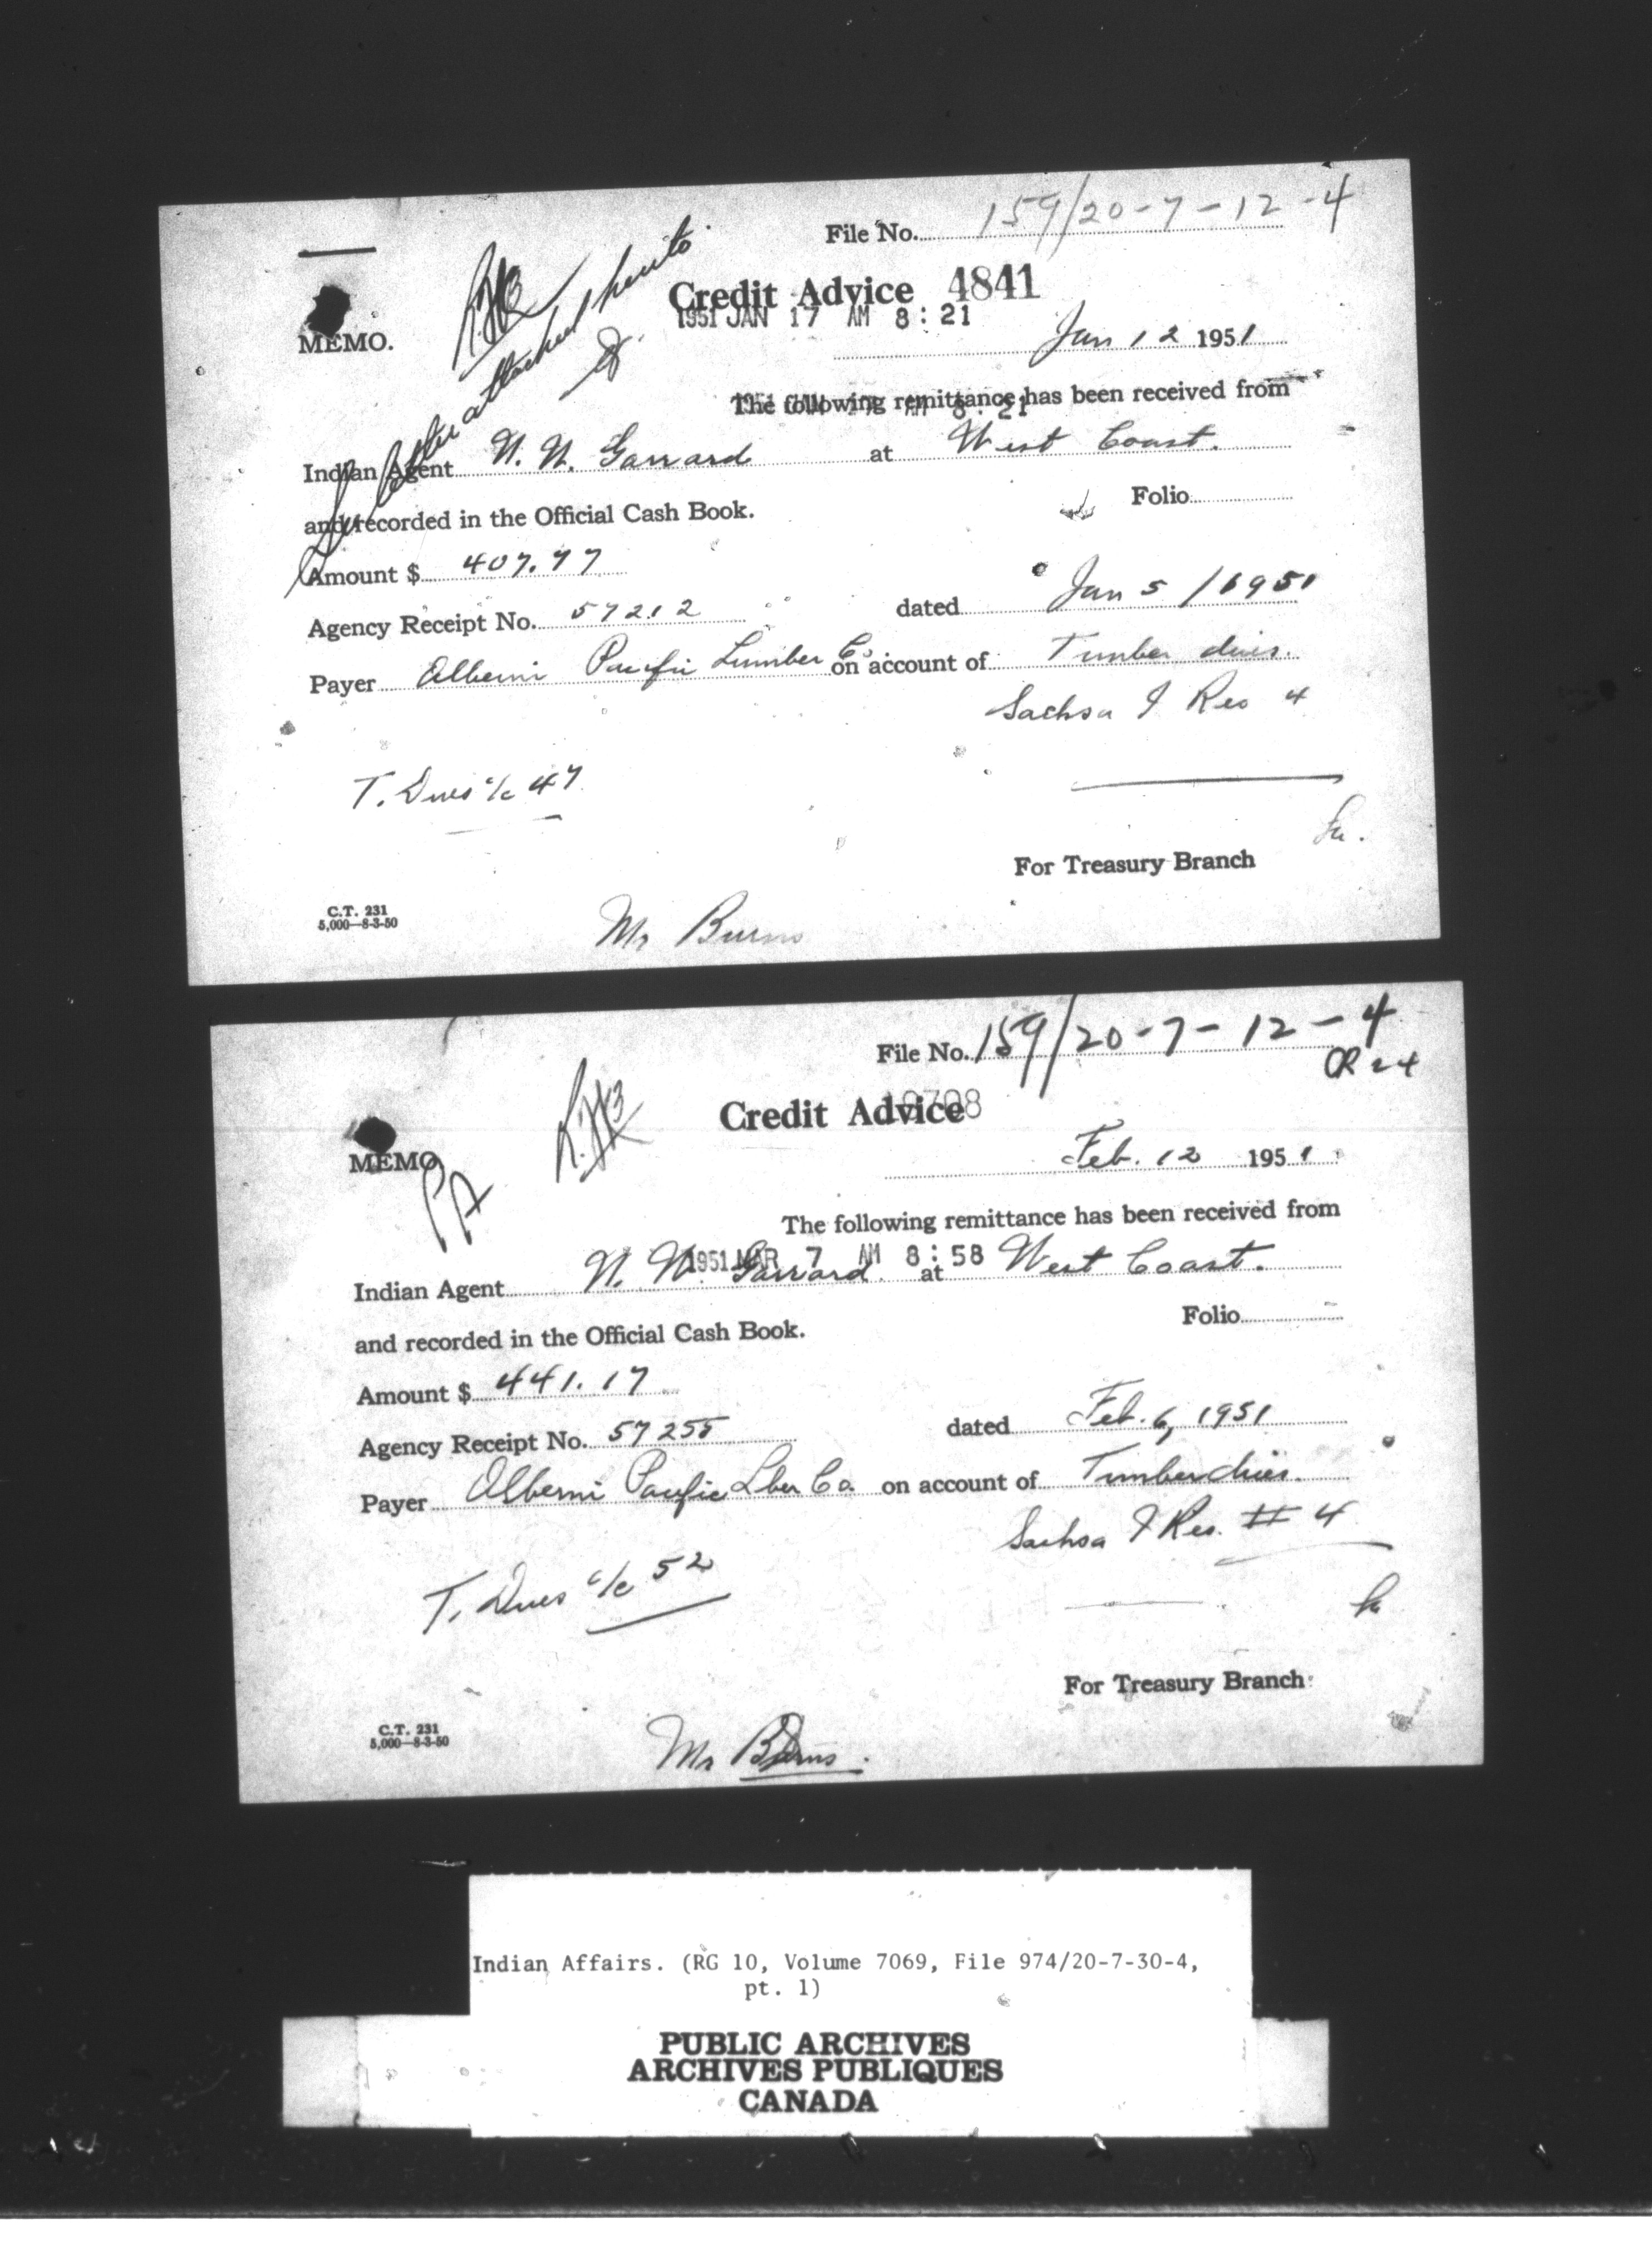 File No. 159/20-7-12-4
Credit Advice 4841
1951 JAN 17 AM 8:21
MEMO.
RHB
See letter attached hereto
Jan 12 1951
The following remittance has been received from
Indian Agent N. W. Garrard at West Coast.
and recorded in the Official Cash Book. Folio
Amount $ 407.77
Agency Receipt No. 57212 dated Jan 5/1951
Payer Alberni Pacific Lumber Co. on account of Timber dues.
Sachsa I Res 4
T. Dues c/c 47
For Treasury Branch
C.T. 231
5,000—8-3-50
Mr Burns
File No. 159/20-7-12-4
CR 24
Credit Advice
MEMO.
PA
RHB
Feb. 12 1951
The following remittance has been received from
1951 MAR 7 AM 8:58
Indian Agent N. W. Garrard at West Coast.
and recorded in the Official Cash Book. Folio
Amount $ 441.17
Agency Receipt No. 57255 dated Feb. 6, 1951
Payer Alberni Pacific Lber Co. on account of Timber dues.
Sachsa I Res. # 4
T. Dues c/c 52
For Treasury Branch
C.T. 231
5,000—8-3-50
Mr Burns.
Indian Affairs. (RG 10, Volume 7069, File 974/20-7-30-4,
pt. 1)
PUBLIC ARCHIVES
ARCHIVES PUBLIQUES
CANADA